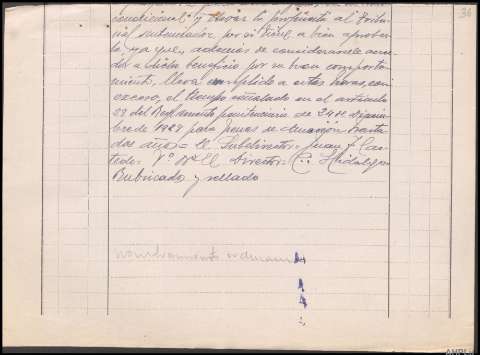 condicional" y elevar la propuesta al Tribu-
nal sentenciador, por si tiene a bien aprobar-
la, ya que, además de considerársele acree-
dor a dicho beneficio por su buen comporta-
miento, lleva cumplido a estas horas, con
exceso, el tiempo señalado en el artículo
28 del Reglamento penitenciario de 24 de Diciem-
bre de 1928 para penas de duración hasta
dos años = El Subdirector = Juan J. Cas-
tedo = Vº Bº El Director = C. Hidalgo =
Rubricado y sellado
nombramiento
36